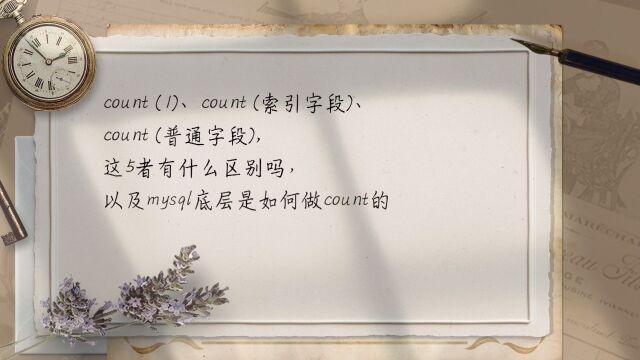 count (1)、count (索引字段)、
count (普通字段),
这5者有什么区别吗,
以及mysql底层是如何做count的